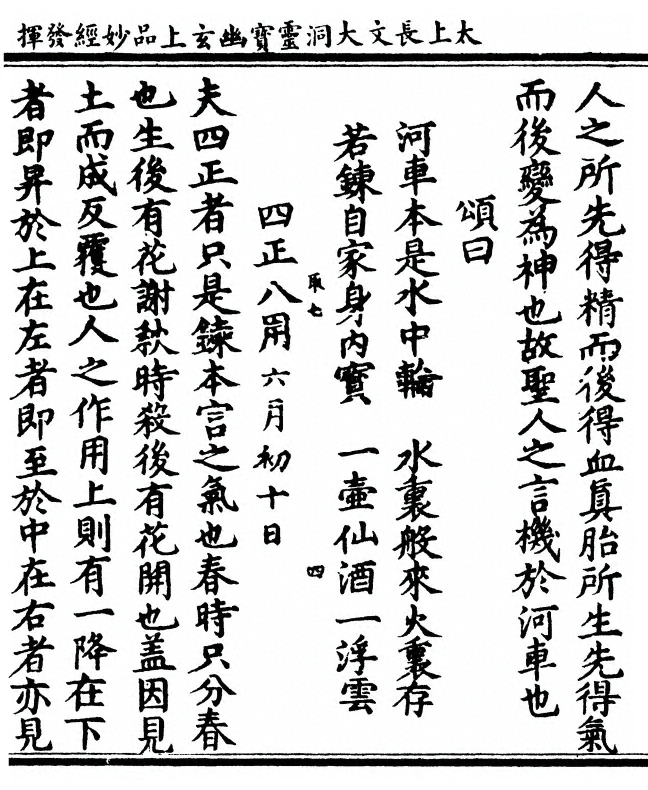 太上長文大洞靈寶幽玄上品妙經發揮
人之所先得精而後得血真胎所生先得氣
而後變為神也故聖人之言機於河車也
頌曰
河車本是水中輪　水裏般來火裏存
若鍊自家身內寶　一壺仙酒一浮雲
取七　四
四正八用六月初十日
夫四正者只是鍊本言之氣也春時只分春
也生後有花謝秋時殺後有花開也蓋因見
土而成反覆也人之作用上則有一降在下
者即昇於上在左者即至於中在右者亦見